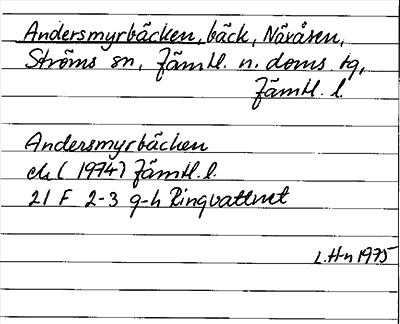 Andersmyrbäcken, bäck, Näråsen,
Ströms sn, Jämtl. n. doms. tg,
Jämtl. l.
Andersmyrbäcken
ek (1974) Jämtl. l.
21 F 2-3 g-h Ringvattnet
L.Hn 1975